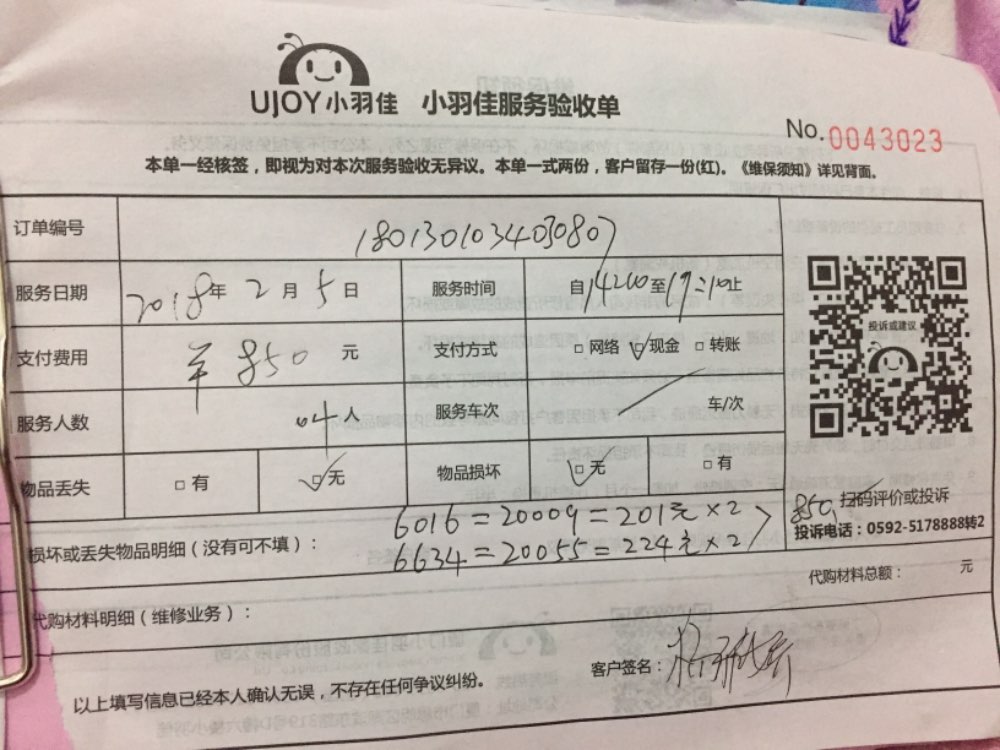 UJOY小羽佳 小羽佳服务验收单
No.0043023
本单一经核签，即视为对本次服务验收无异议。本单一式两份，客户留存一份(红)。《维保须知》详见背面。
订单编号 1801301034030807
服务日期 2018年2月5日 服务时间 自14:00至19:10止
支付费用 ￥850元 支付方式 □网络 ☑现金 □转账
服务人数 04人 服务车次 车/次
物品丢失 □有 ☑无 物品损坏 ☑无 □有
投诉或建议
扫码评价或投诉
投诉电话：0592-5178888转2
损坏或丢失物品明细（没有可不填）：
6016=20009=201元×2
6634=20055=224元×2
850
代购材料明细（维修业务）： 代购材料总额： 元
客户签名：
以上填写信息已经本人确认无误，不存在任何争议纠纷。